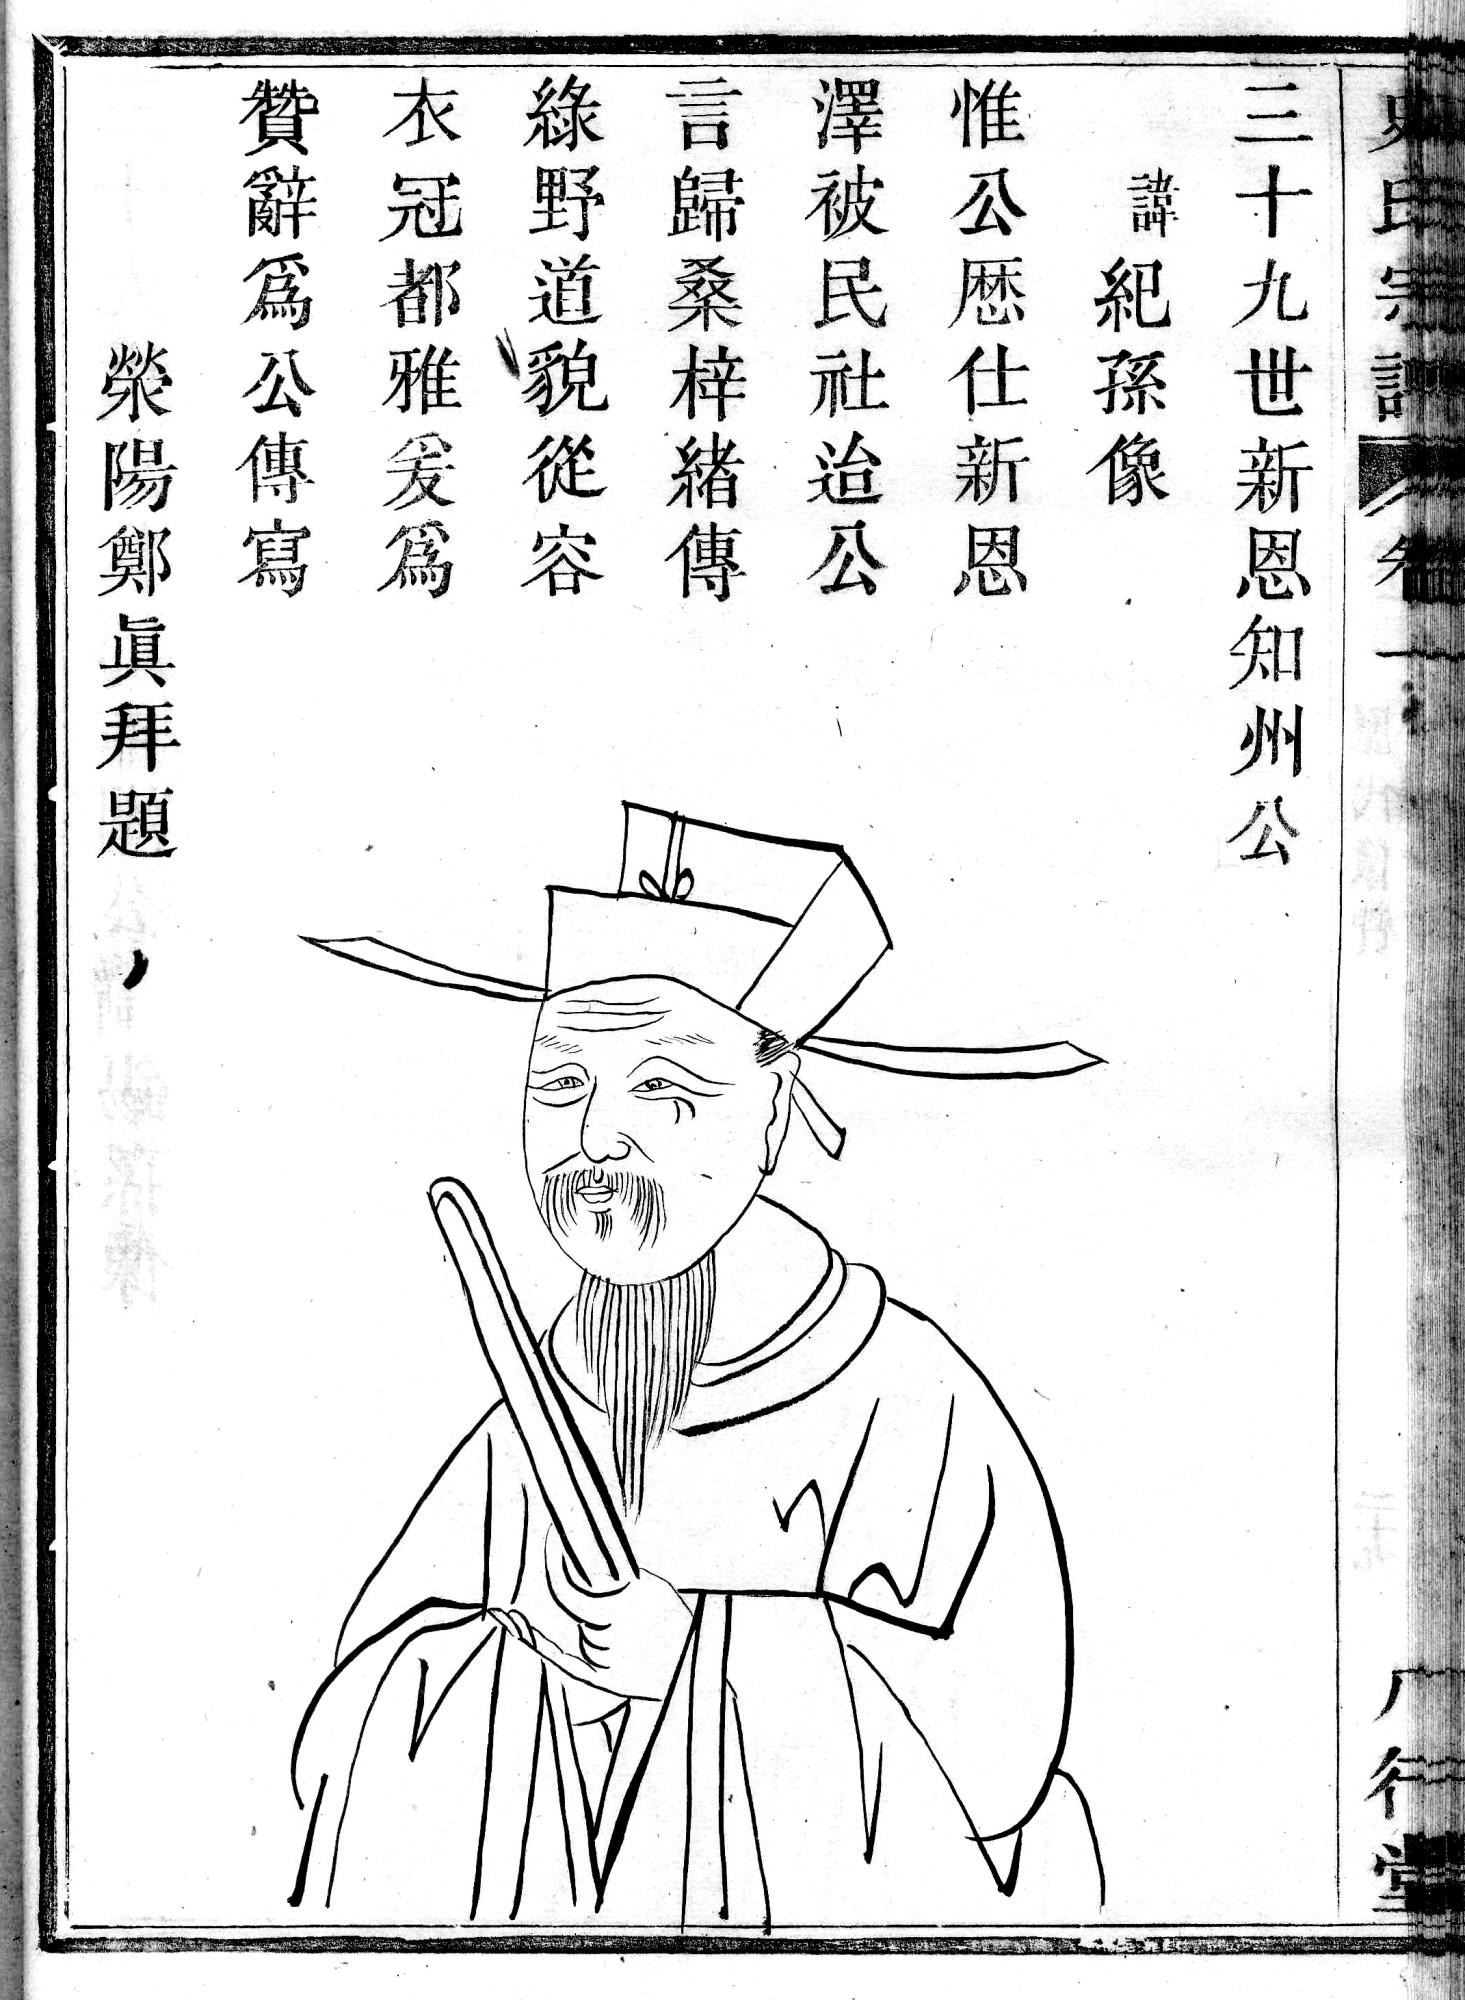 史氏宗譜 卷一 八行堂
三十九世新恩知州公
諱紀孫像
惟公歷仕新恩
澤被民社迨公
言歸桑梓緒傳
綠野道貌從容
衣冠都雅爰爲
贊辭爲公傳寫
滎陽鄭眞拜題